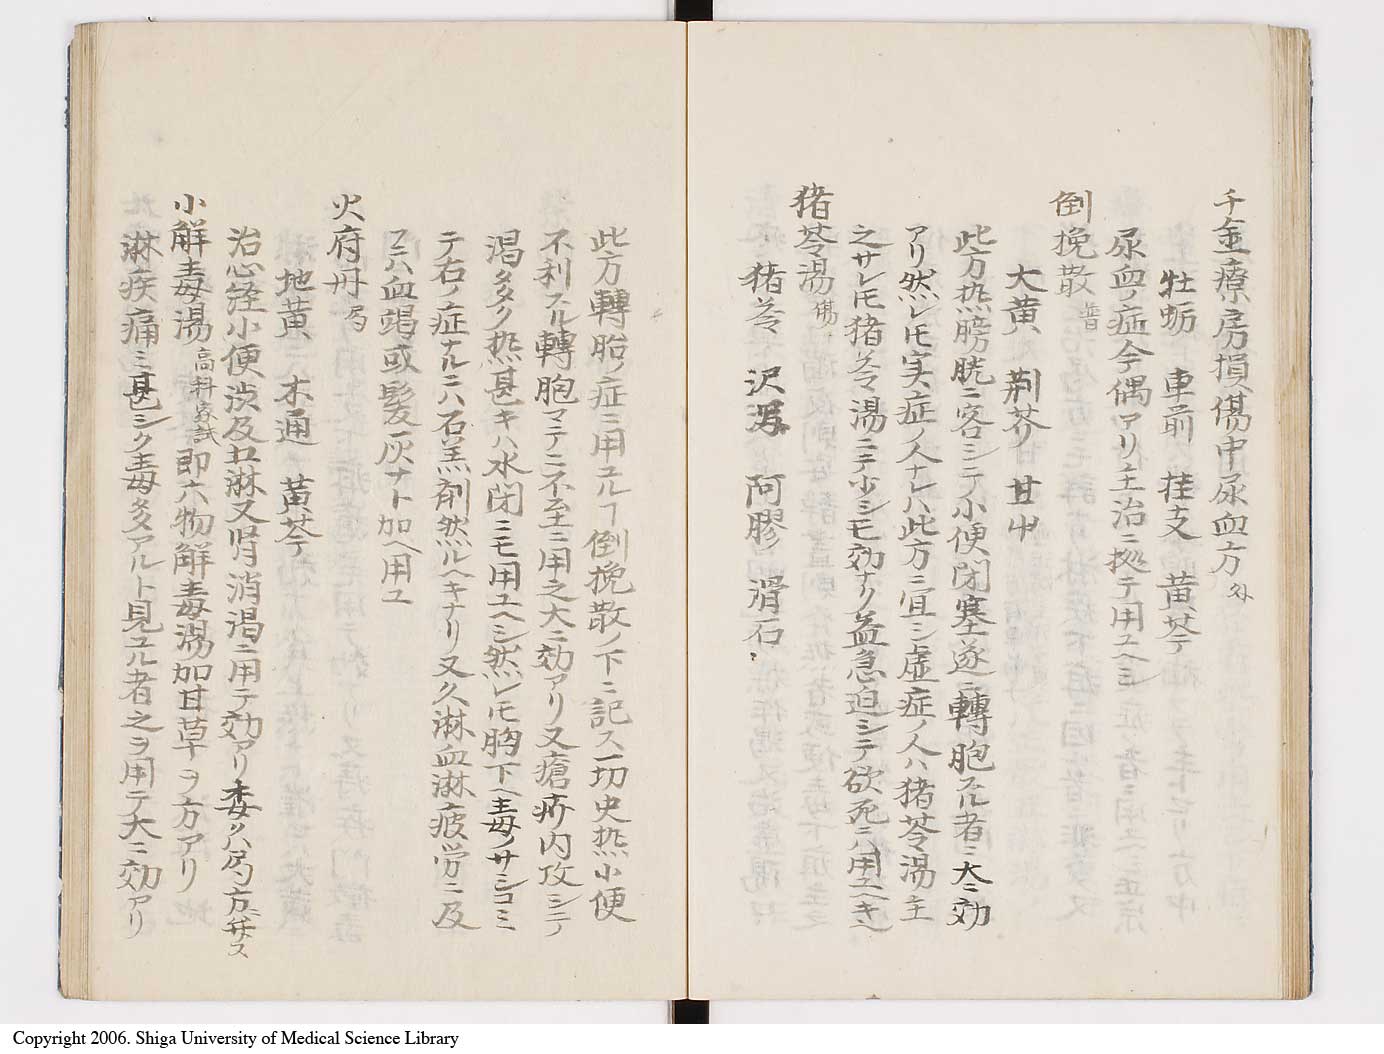 千金療房損傷中尿血方 外
牡蛎 車前 桂支 黄芩
尿血ノ症今偶アリ主治ニ拠テ用ユヘシ
倒換散 普
大黄 荊芥 甘中
此方热膀胱ニ客シテ小便閉塞遂ニ轉胞スル者ニ大ニ効
アリ然レ𪜈実症ノ人ナレハ此方ニ宜シ虚症ノ人ハ猪苓湯主
之サレ𪜈猪苓湯ニテ少シモ効ナク益急迫シテ欲死ニハ用ユヘき
猪苓湯 傷
猪苓 沢瀉 阿膠 滑石
此方轉胎ノ症ニ用ユルヿ倒換散ノ下ニ記ス一切史热小便
不利スル轉胞マテニ不至ニ用之大ニ効アリ又瘡疥内攻シテ
渇多ク热甚キハ水閉ニモ用ユヘシ然レ𪜈胸下ヘ毒ノサシコミ
テ右ノ症ナルニハ石羔剤然ルヘキナリ又久淋血淋疲労ニ及
フニハ血竭或髪灰ナト加ヘ用ユ
火府丹 局
地黄 木通 黄芩
治心経小便渋及五淋又腎消渇ニ用テ効アリ委クハ局方ニ弁ス
小解毒湯 高料家試 即六物解毒湯加甘草ヲ方アリ
淋疾痛ミ甚シク毒多クアルト見ユル者之ヲ用テ大ニ効アリ
Copyright 2006. Shiga University of Medical Science Library